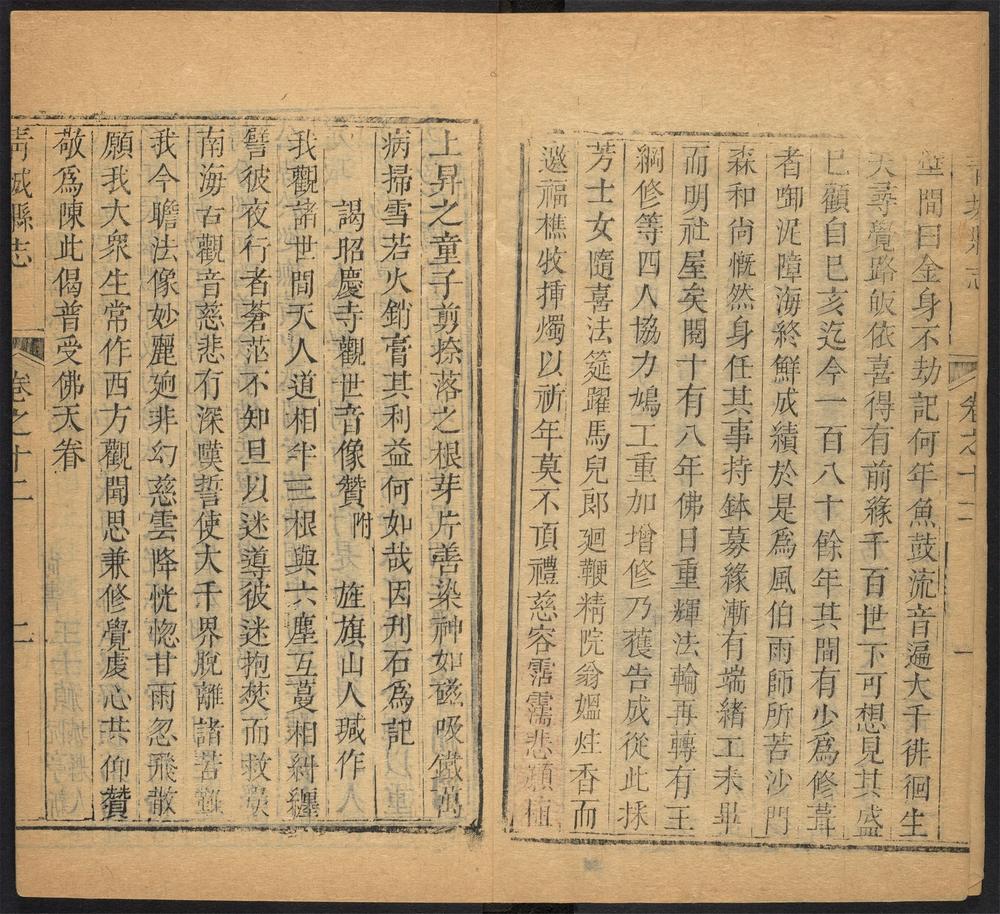 青城縣志
卷之十二
一
壁間曰金身不劫記何年魚鼓流音遍大千徘徊生
天尋覺路皈依喜得有前緣千百世下可想見其盛
已顧自巳亥迄今一百八十餘年其間有少爲修葺
者啣泥障海終鮮成績於是爲風伯雨師所苦沙門
森和尚慨然身任其事持鉢募緣漸有端緒工未畢
而明社屋矣閱十有八年佛日重輝法輪再轉有王
綱修等四人協力鳩工重加增修乃獲告成從此採
芳士女隨喜法筵躍馬兒郎廻鞭精院翁媼炷香而
邀福樵牧揷燭以祈年莫不頂禮慈容霑濡悲願植
上昇之童子剪捺落之根芽片善染神如磁吸鐵萬
病掃雪若火銷膏其利益何如哉因刋石爲記
謁昭慶寺觀世音像贊 附 旌旗山人瑊作
我觀諸世間天人道相半三根與六塵互蔓相糾纏
譬彼夜行者蒼茫不知旦以迷導彼迷抱焚而救
南海古觀音慈悲有深嘆誓使大千界脫離諸苦難
我今瞻法像妙麗廻非幻慈雲降恍惚甘雨忽飛散
願我大衆生常作西方觀聞思兼修覺虔心共仰贊
敬爲陳此偈普受佛天眷
青城縣志
卷之十二
二